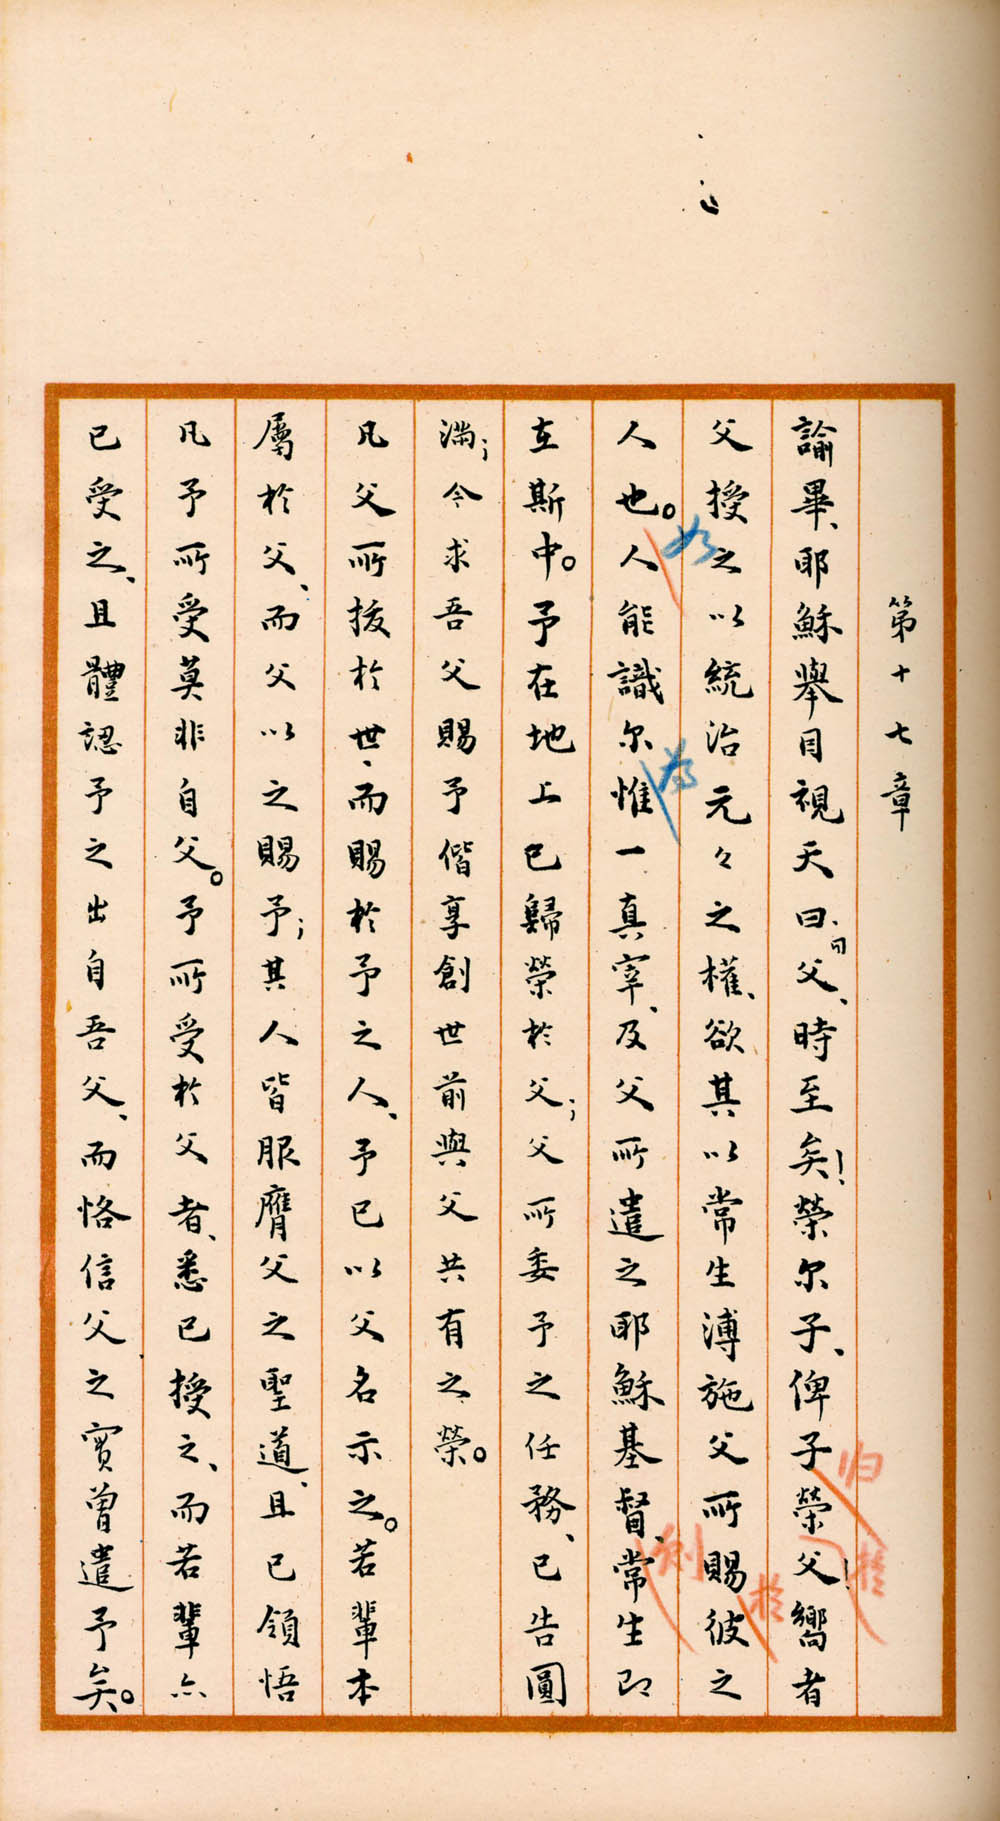 第十七章
諭畢、耶穌舉目視天曰、父、時至矣!榮尔子、俾子归榮於父!嚮者
父授之以統治元々之權、欲其以常生溥施父所賜彼於之
人也。如人能識尔為惟一真宰、及父所遣之耶穌基督、則常生即
在斯中。予在地上已歸榮於父;父所委予之任務、已告圓
滿;今求吾父賜予偕享創世前與父共有之榮。
凡父所拔於世、而賜於予之人、予已以父名示之。若輩本
屬於父、而父以之賜予;其人皆服膺父之聖道、且已領悟
凡予所受莫非自父。予所受於父者、悉已授之、而若輩亦
已受之、且體認予之出自吾父、而恪信父之實曾遣予矣。